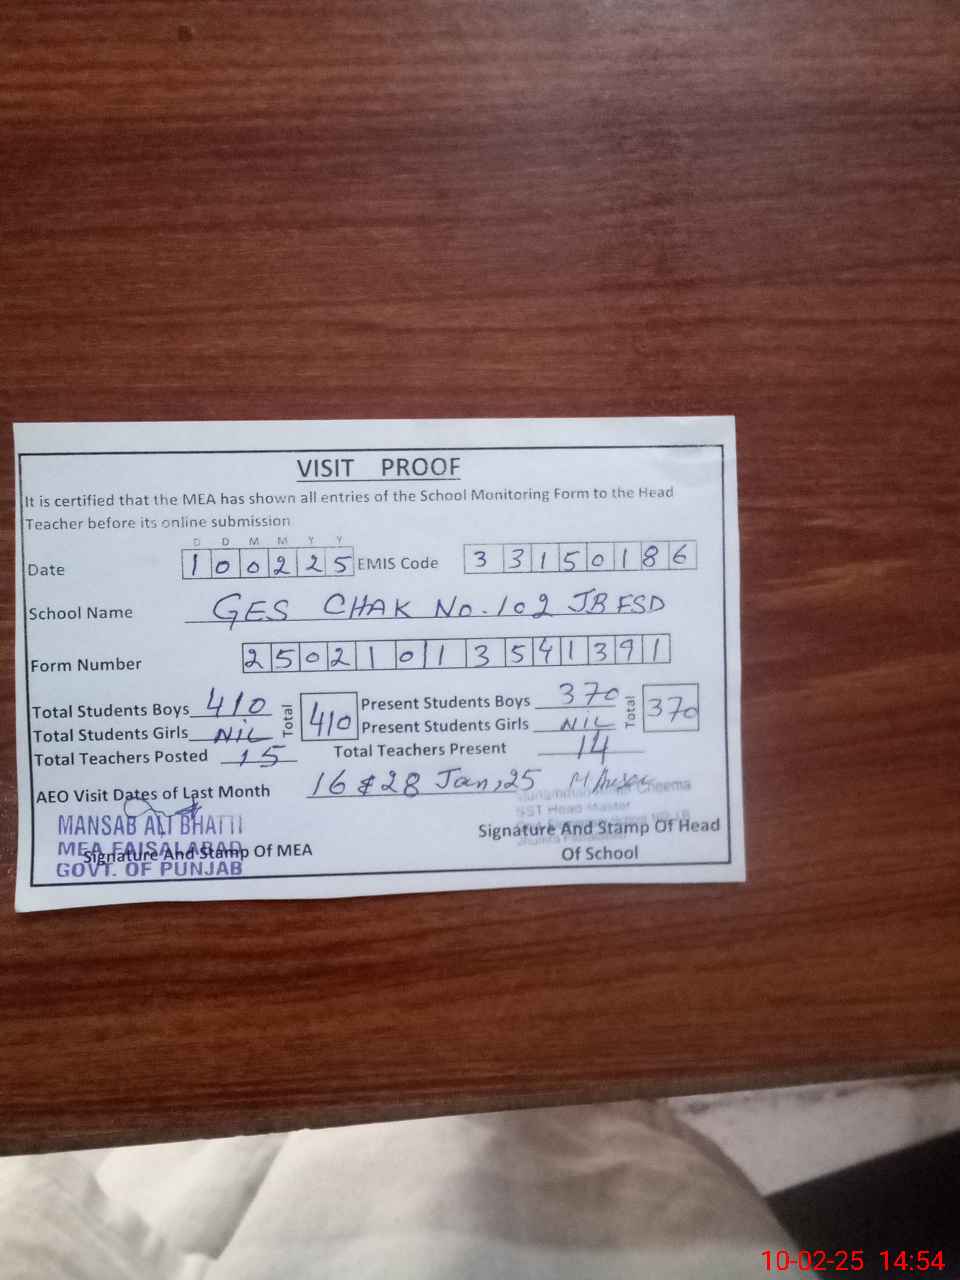 VISIT PROOF
It is certified that the MEA has shown all entries of the School Monitoring Form to the Head
Teacher before its online submission
D D M M Y Y
Date 100225 EMIS Code 33150186
School Name GES CHAK No. 102 JB FSD
Form Number 250210113541391
Total Students Boys 410 Total 410 Present Students Boys 370 Total 370
Total Students Girls NIL Present Students Girls NIL
Total Teachers Posted 15 Total Teachers Present 14
AEO Visit Dates of Last Month 16 & 28 Jan, 25
Cheema
SST Head Master
MANSAB ALI BHATTI
MEA FAISALABAD
GOVT. OF PUNJAB
Signature And Stamp Of MEA
Signature And Stamp Of Head
Of School
10-02-25 14:54